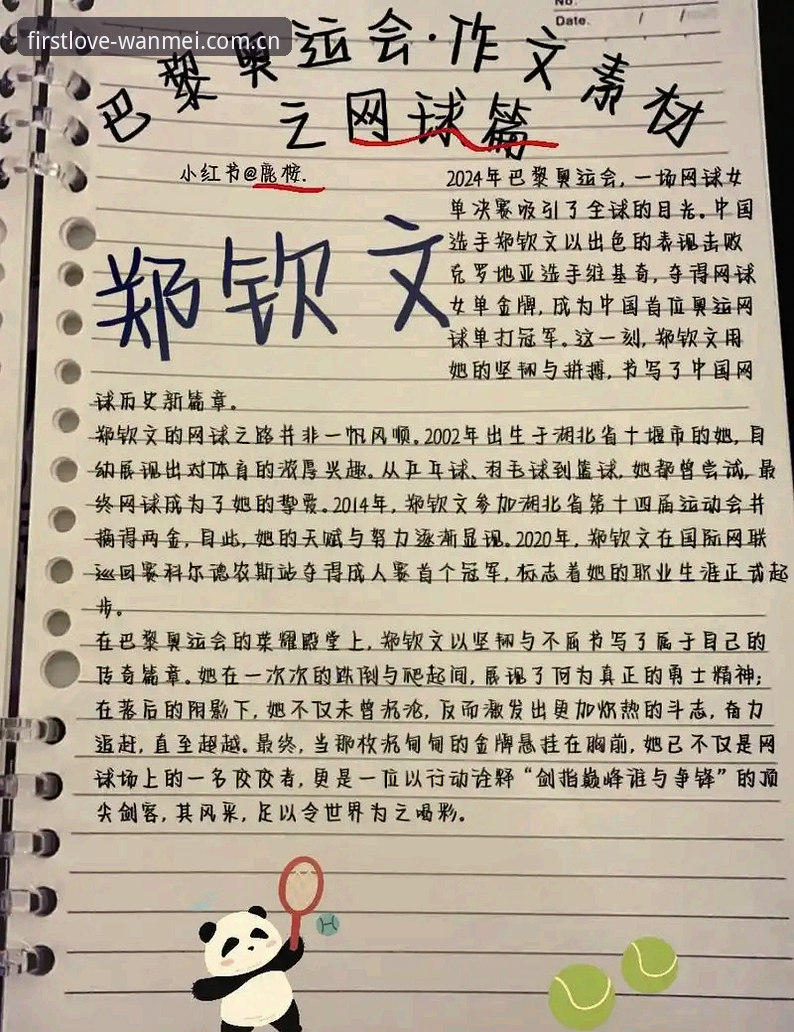 firstlove-wanmei.com.cn
No.
Date.
巴黎奥运会·作文素材
之网球篇
小红书@鹿桉.
郑钦文
2024年巴黎奥运会,一场网球女
单决赛吸引了全球的目光。中国
选手郑钦文以出色的表现击败
克罗地亚选手维基奇,夺得网球
女单金牌,成为中国首位奥运网
球单打冠军。这一刻,郑钦文用
她的坚韧与拼搏,书写了中国网
球历史新篇章。
郑钦文的网球之路并非一帆风顺。2002年出生于湖北省十堰市的她,自
幼展现出对体育的浓厚兴趣。从乒乓球、羽毛球到篮球,她都曾尝试,最
终网球成为了她的挚爱。2014年,郑钦文参加湖北省第十四届运动会并
摘得两金,自此,她的天赋与努力逐渐显现。2020年,郑钦文在国际网联
巡回赛科尔德农斯站夺得成人赛首个冠军,标志着她的职业生涯正式起
步。
在巴黎奥运会的荣耀殿堂上,郑钦文以坚韧与不屈书写了属于自己的
传奇篇章。她在一次次的跌倒与爬起间,展现了何为真正的勇士精神;
在落后的阴影下,她不仅未曾沉沦,反而激发出更加炽热的斗志,奋力
追赶,直至超越。最终,当那枚沉甸甸的金牌悬挂在胸前,她已不仅是网
球场上的一名佼佼者,更是一位以行动诠释“剑指巅峰谁与争锋”的顶
尖剑客,其风采,足以令世界为之喝彩。